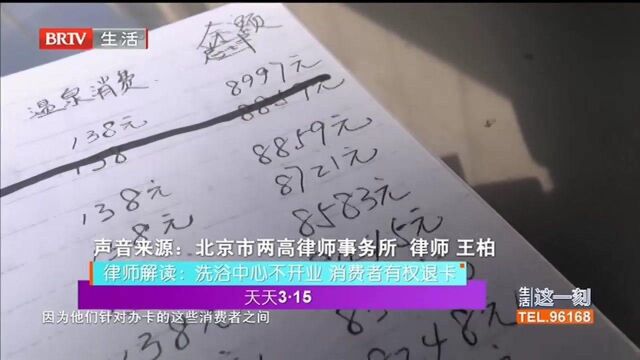 BRTV 生活
温泉消费 余额
138元 8997元
138
138元 8859元
8元 8721元
8583元
45元
声音来源：北京市两高律师事务所 律师 王柏
律师解读：洗浴中心不开业 消费者有权退卡
天天3·15
因为他们针对办卡的这些消费者之间
生活这一刻
TEL.96168